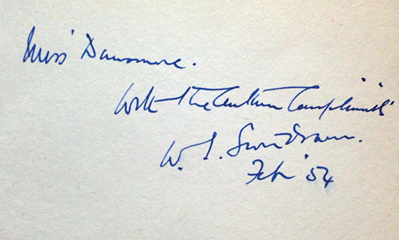 Miss Dunsmure.
With the Author's Compliments
W. S.
Feb' '54